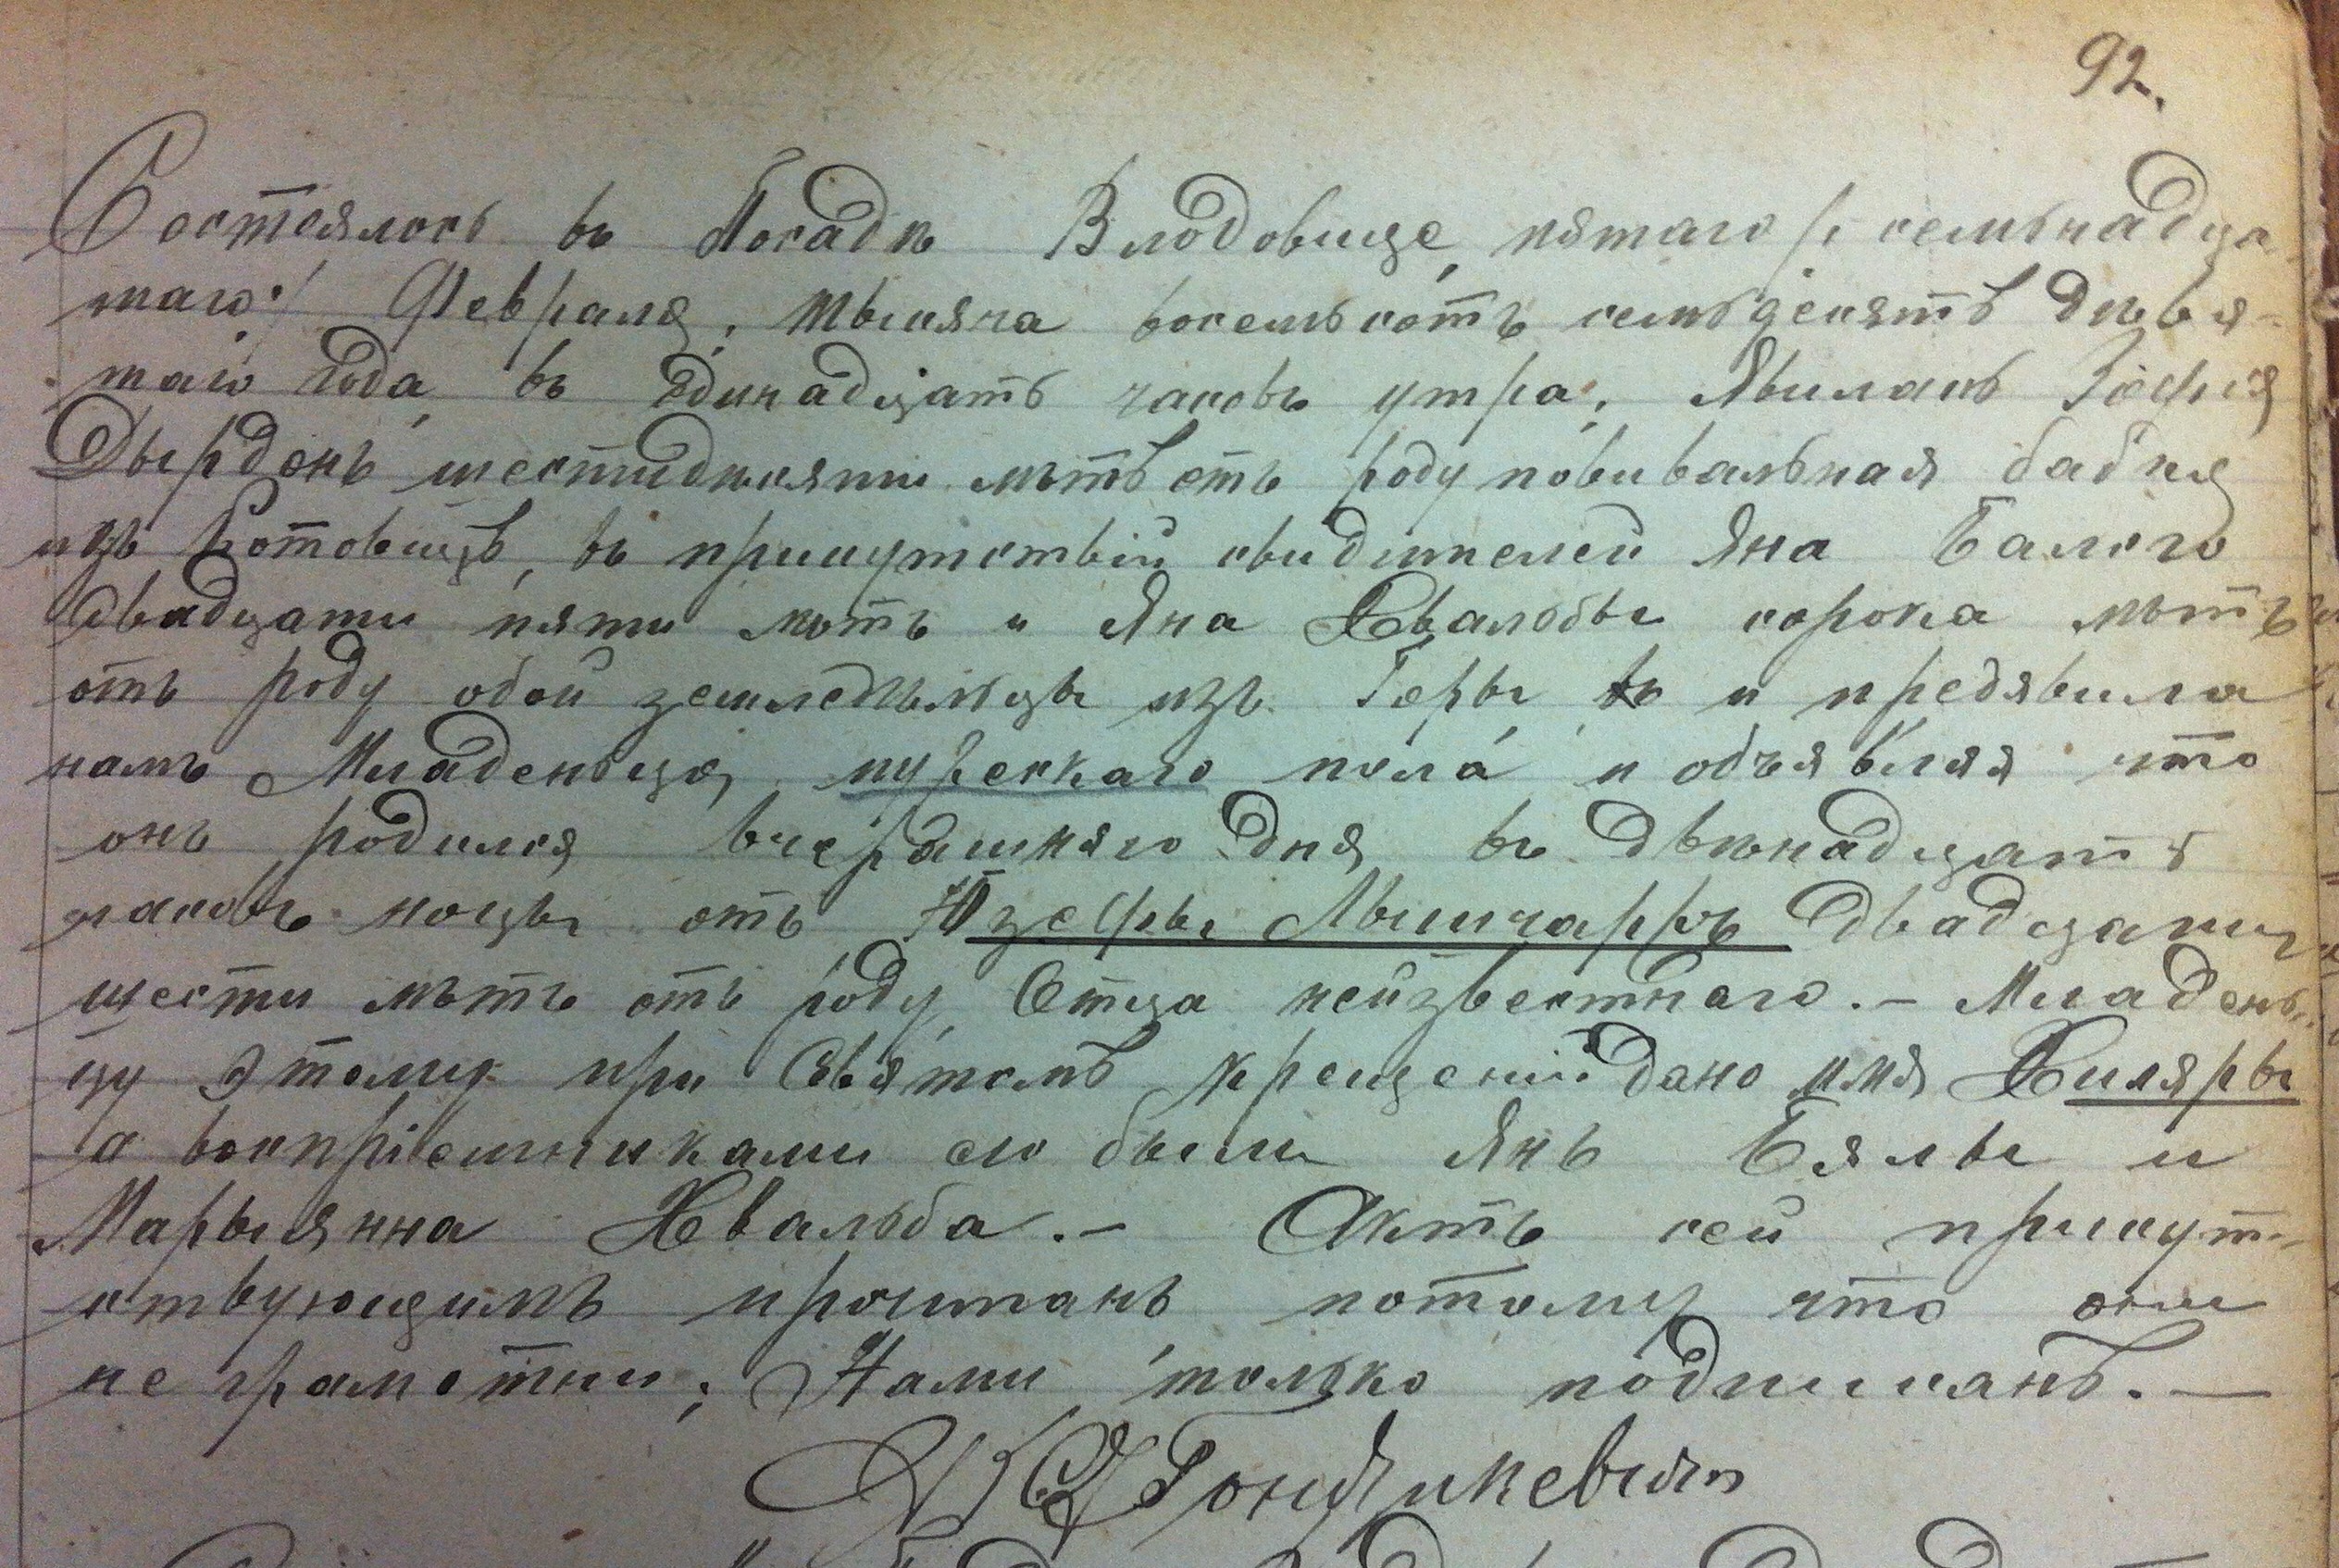 92.
Состоялось въ Посадѣ Влодовице, пятаго /: семьнадца-
таго :/ Февраля, тысяча восемьсотъ семьдесятъ девя-
таго года, въ одинадцать часовъ утра, Явилась Зофия
Дырдонь шестидѣсяти лѣтъ отъ роду повивальная бабка
изъ Котовицъ, въ присутствій свидѣтелей Яна Балого
двадцати пяти лѣтъ и Яна Хвальбы сорока лѣтъ
отъ роду обой земледѣльцы изъ Горы и предявила
намъ Младеньца, мужескаго пола и объявляя что
онъ родился вчерашняго дня въ двѣнадцать
часовъ ноцы отъ Юзефы двадцати
шести лѣтъ отъ роду, Отца неизвестнаго. — Младень-
цу этому при Святомъ крещеніи дано имя Хиляры
а воспріемниками его были Янъ Бялы и
Марыянна Хвальба. — Актъ сей присут-
ствующимъ прочитанъ потому что они
не грамотни; Нами только подписанъ. —